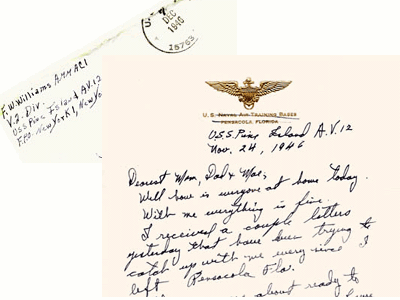 U.
DEC
1946
16763
F.W. Williams AMMAC1
V.2. Div.
U.S.S. Pine Island A.V.12
F.P.O. New York, New York
U.S. Naval Air Training Bases
Pensacola, Florida
U.S.S. Pine Island A.V. 12
Nov. 24, 1946
Dearest Mom, Dad & Mae,
Well how is everyone at home today.
With me everything is fine.
I received a couple letters
yesterday that have been trying to
catch up with me every since I
left Pensacola Fla.
about ready to